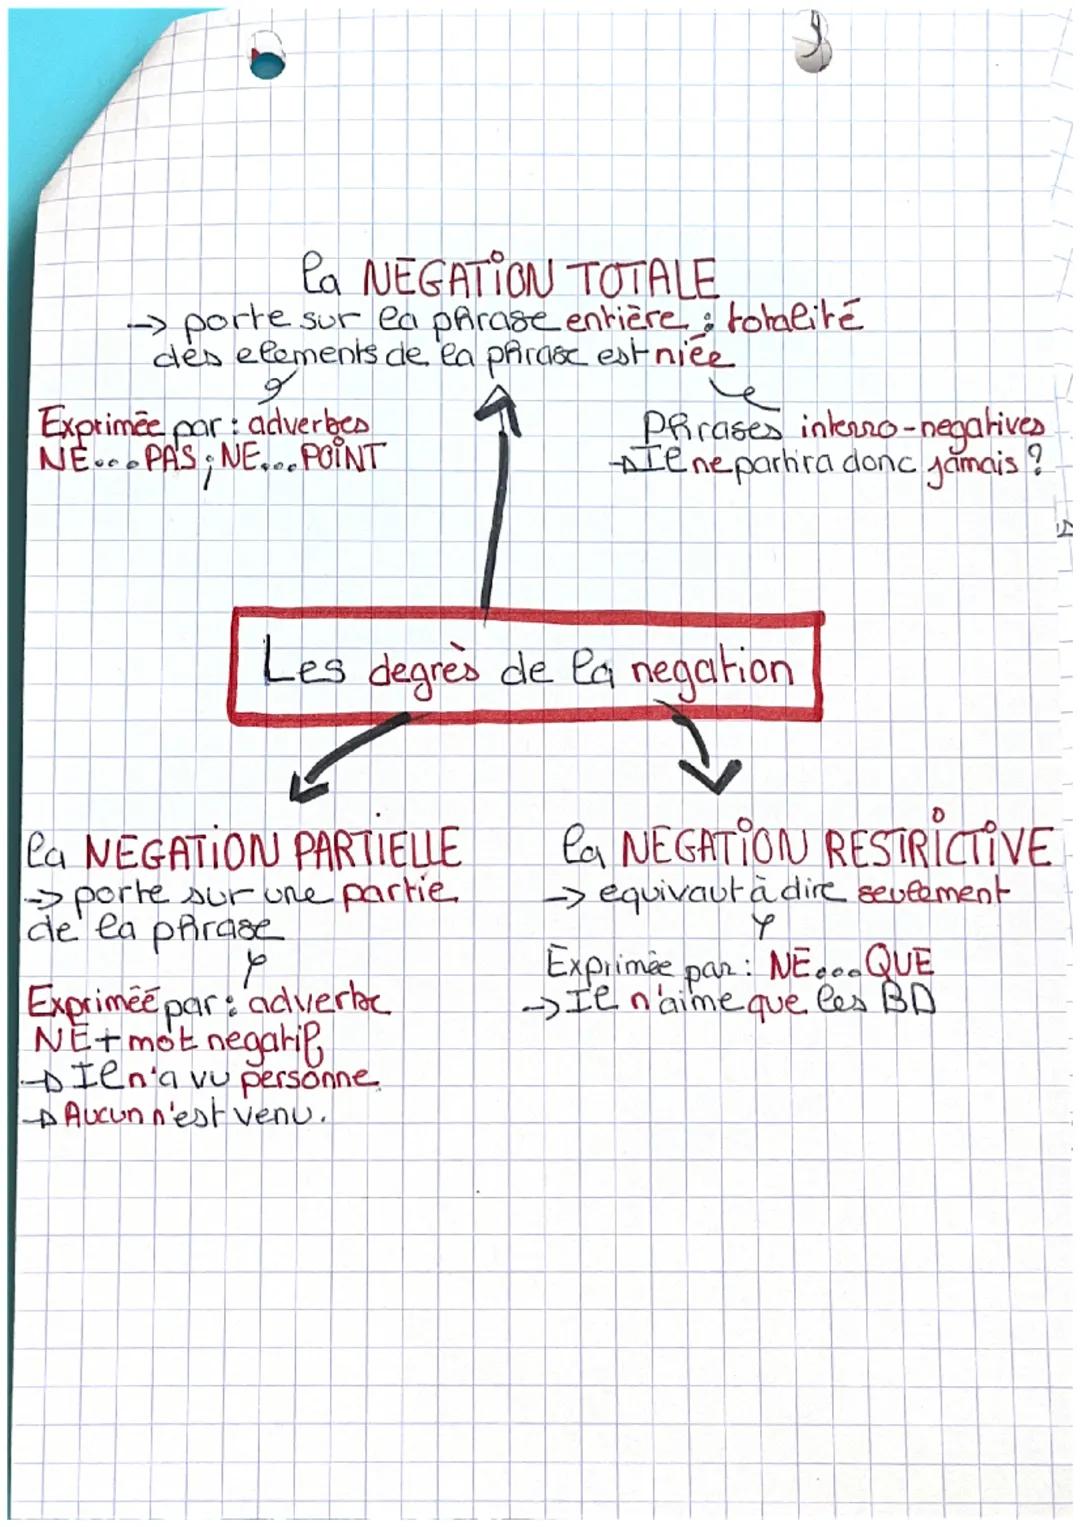 la NEGATION TOTALE
→ porte sur la phrase entière ; totalité
des elements de la phrase est niée
Exprimée par : adverbes
NE... PAS ; NE... POINT
Phrases interro-negatives
→ Il ne partira donc jamais ?
Les degrès de la negation
la NEGATION PARTIELLE
→ porte sur une partie
de la phrase
Exprimée par : adverbe
NE + mot negatif
→ Il n'a vu personne
→ Aucun n'est venu.
la NEGATION RESTRICTIVE
→ equivaut à dire seulement
Exprimée par : NE... QUE
→ Il n'aime que les BD